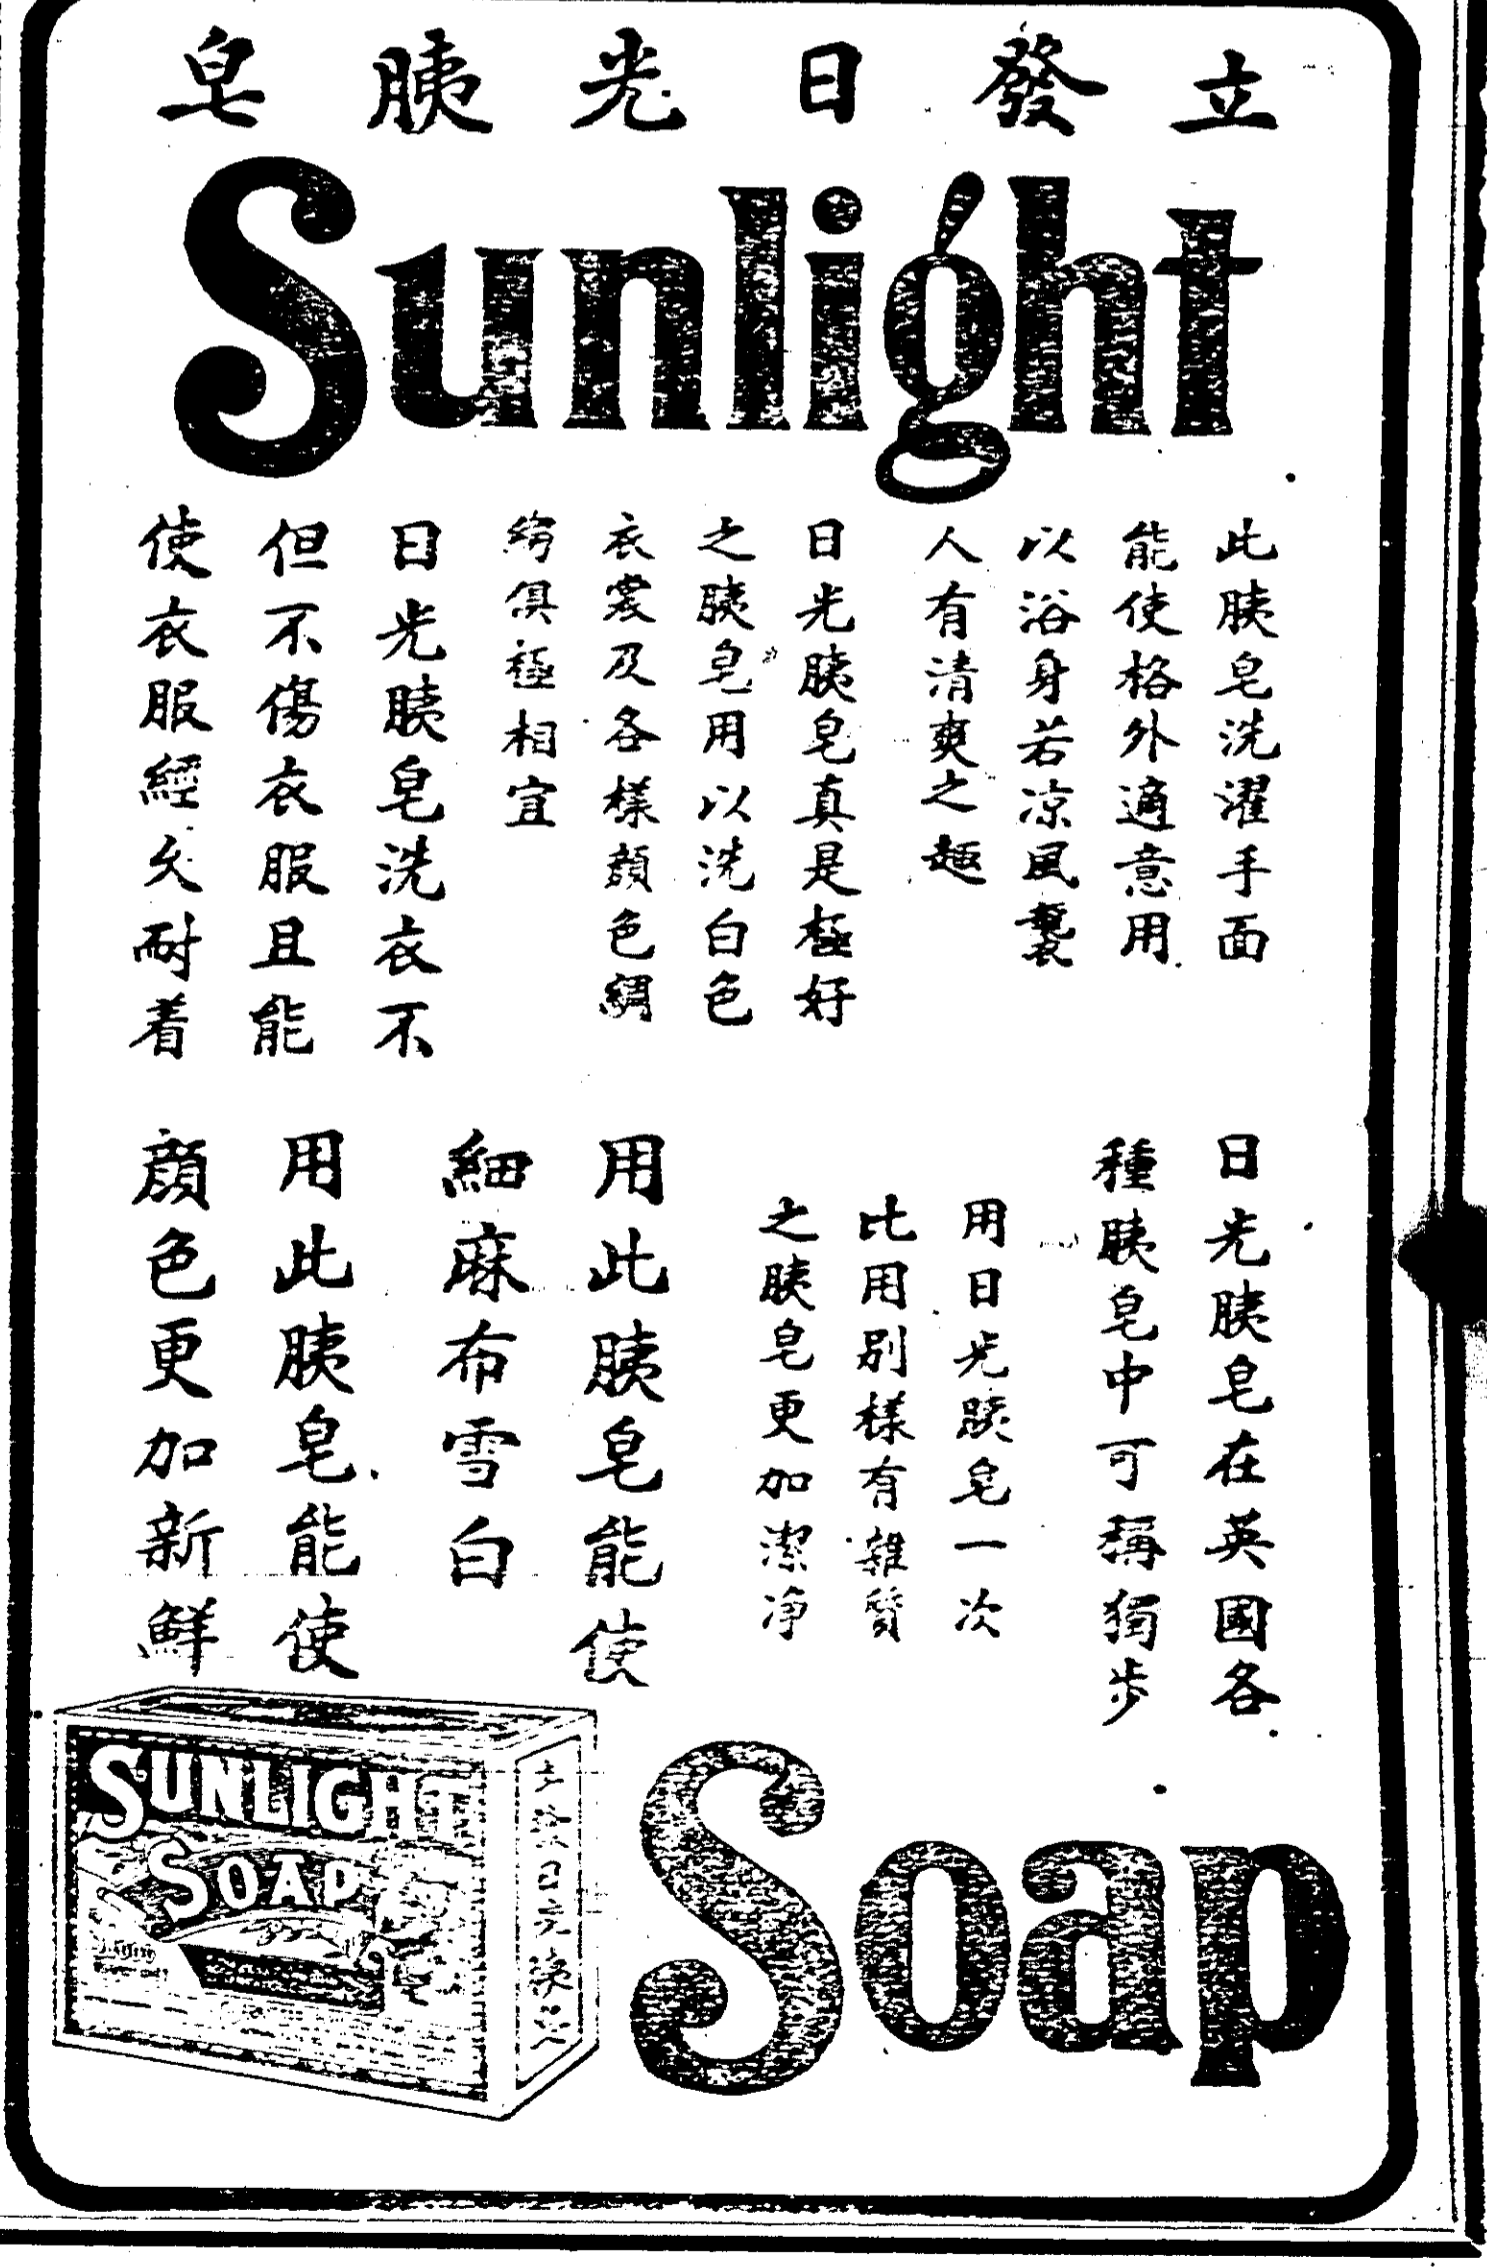 立發日光胰皂
Sunlight
此胰皂洗濯手面
能使格外適意用
以浴身若凉風襲
人有清爽之趣
日光胰皂真是極好
之胰皂用以洗白色
衣裳及各樣顔色綢
絹俱極相宜
日光胰皂洗衣不
但不傷衣服且能
使衣服經久耐着
日光胰皂在英國各
種胰皂中可稱獨步
用日光胰皂一次
比用別樣有雜質
之胰皂更加潔净
用此胰皂能使
細麻布雪白
用此胰皂能使
顔色更加新鮮
SUNLIGHT
SOAP
Soap